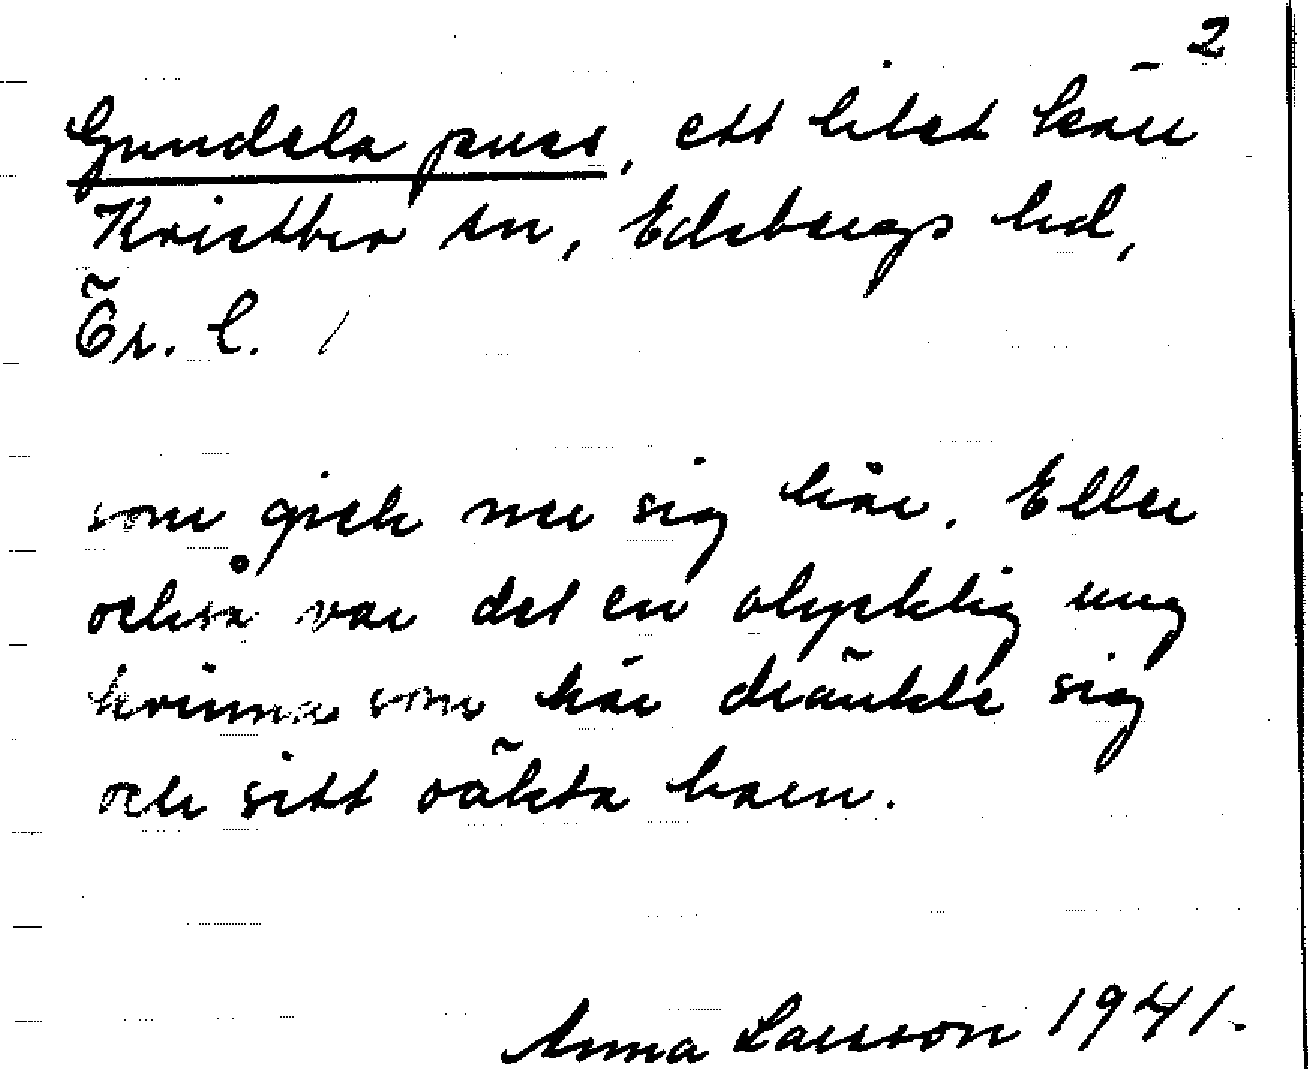 2
Gundela puss, ett litet kärr
Knistbro sn, Edsbergs hd,
Ör. l.
som gick ner sig här. Eller
också var det en olycklig ung
kvinna som här dränkte sig
och sitt oäkta barn.
Anna Larsson 1941.